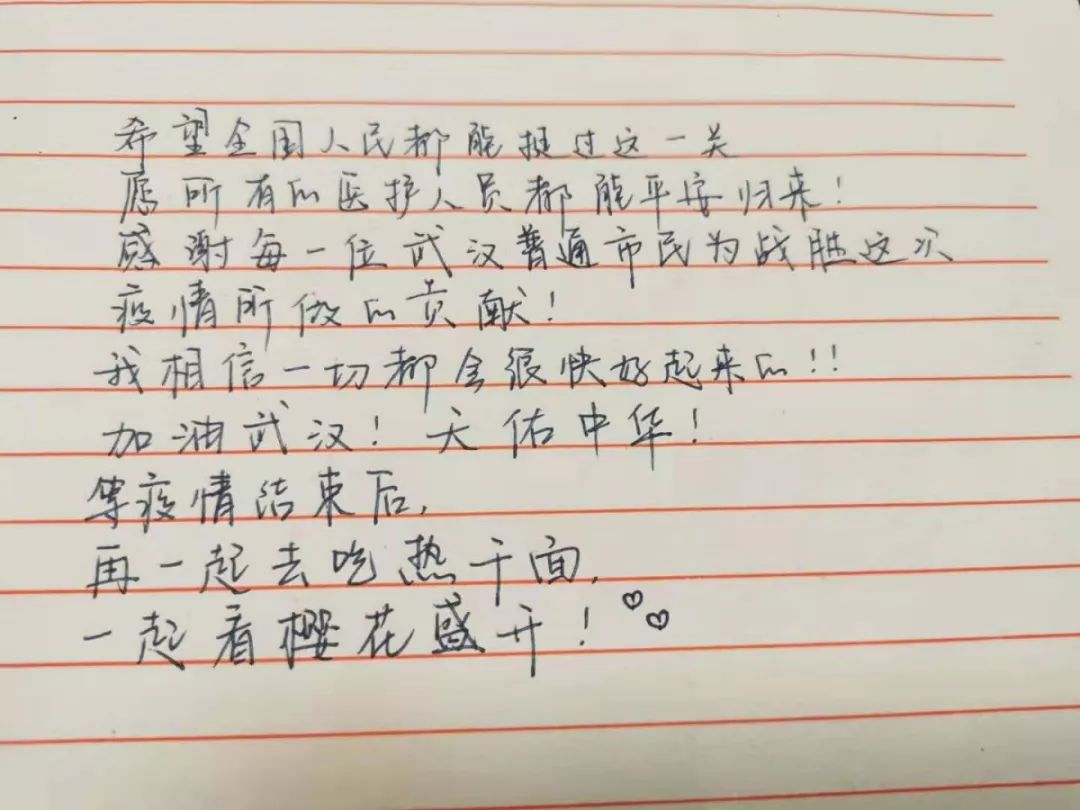 希望全国人民都能挺过这一关
愿所有的医护人员都能平安归来！
感谢每一位武汉普通市民为战胜这次
疫情所做的贡献！
我相信一切都会很快好起来的！！
加油武汉！天佑中华！
等疫情结束后，
再一起去吃热干面，
一起看樱花盛开！♡♡